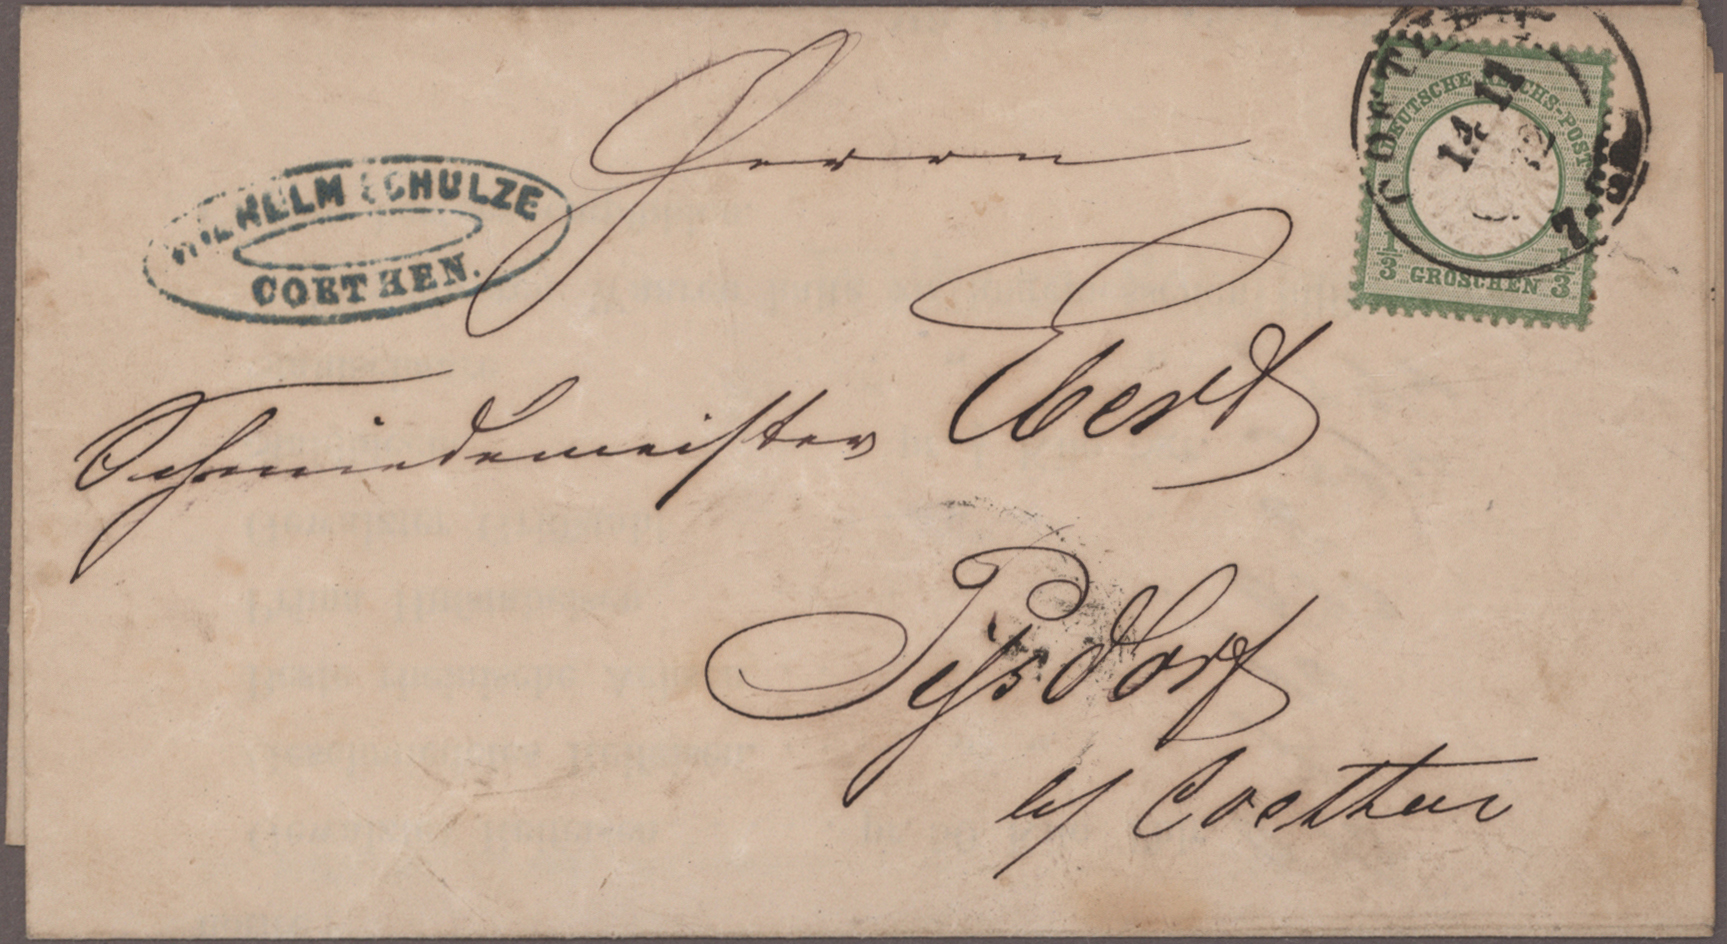 WILHELM SCHULZE
COETHEN.
COETHEN
14 11
7-8
DEUTSCHE REICHS-POST
1/3 GROSCHEN 1/3
Herrn
Schmiedemeister Ebert
b/ Coethen